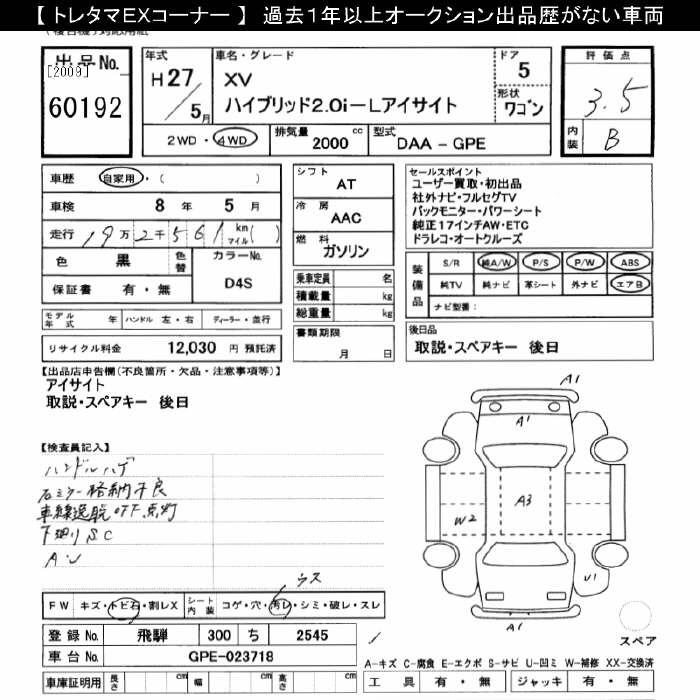 【 トレタマEXコーナー 】 過去1年以上オークション出品歴がない車両
出品No.
[2009]
60192
年式
H27/5月
車名・グレード
XV
ハイブリッド2.0i-Lアイサイト
ドア
5
形状
ワゴン
2WD・4WD
排気量 2000 cc
型式 DAA-GPE
評価点
3.5
内装 B
車歴 自家用・( )
車検 8 年 5 月
走行 19万2千561 km マイル( )
色 黒 色替 カラーNo. D4S
保証書 有・無
モデル年式 年 ハンドル 左・右 ディーラー・並行
リサイクル料金 12,030 円 預託済
シフト AT
冷房 AAC
燃料 ガソリン
乗車定員 名
積載量 kg
総重量 kg
書類期限
月 日
セールスポイント
ユーザー買取・初出品
社外ナビ・フルセグTV
バックモニター・パワーシート
純正17インチAW・ETC
ドラレコ・オートクルーズ
装備品
S/R 純A/W P/S P/W ABS
純TV 純ナビ 革シート 外ナビ エアB
ナビ型番:
後日品
取説・スペアキー 後日
【出品店申告欄(不良箇所・欠品・注意事項等)】
アイサイト
取説・スペアキー 後日
【検査員記入】
ハンドルハゲ
右ミラー格納不良
車線逸脱OFF点灯
下廻りSC
A.U
A1
A1
A3
W2
U1
A1
スペア
ウス
FW キズ・トビ石・割レX
シート内装 コゲ・穴・汚レ・シミ・破レ・スレ
登録No. 飛騨 300 ち 2545
車台No. GPE-023718
車庫証明用 長さ cm 幅 cm 高さ cm
A-キズ C-腐食 E-エクボ S-サビ U-凹ミ W-補修 XX-交換済
工具 有・無 ジャッキ 有・無